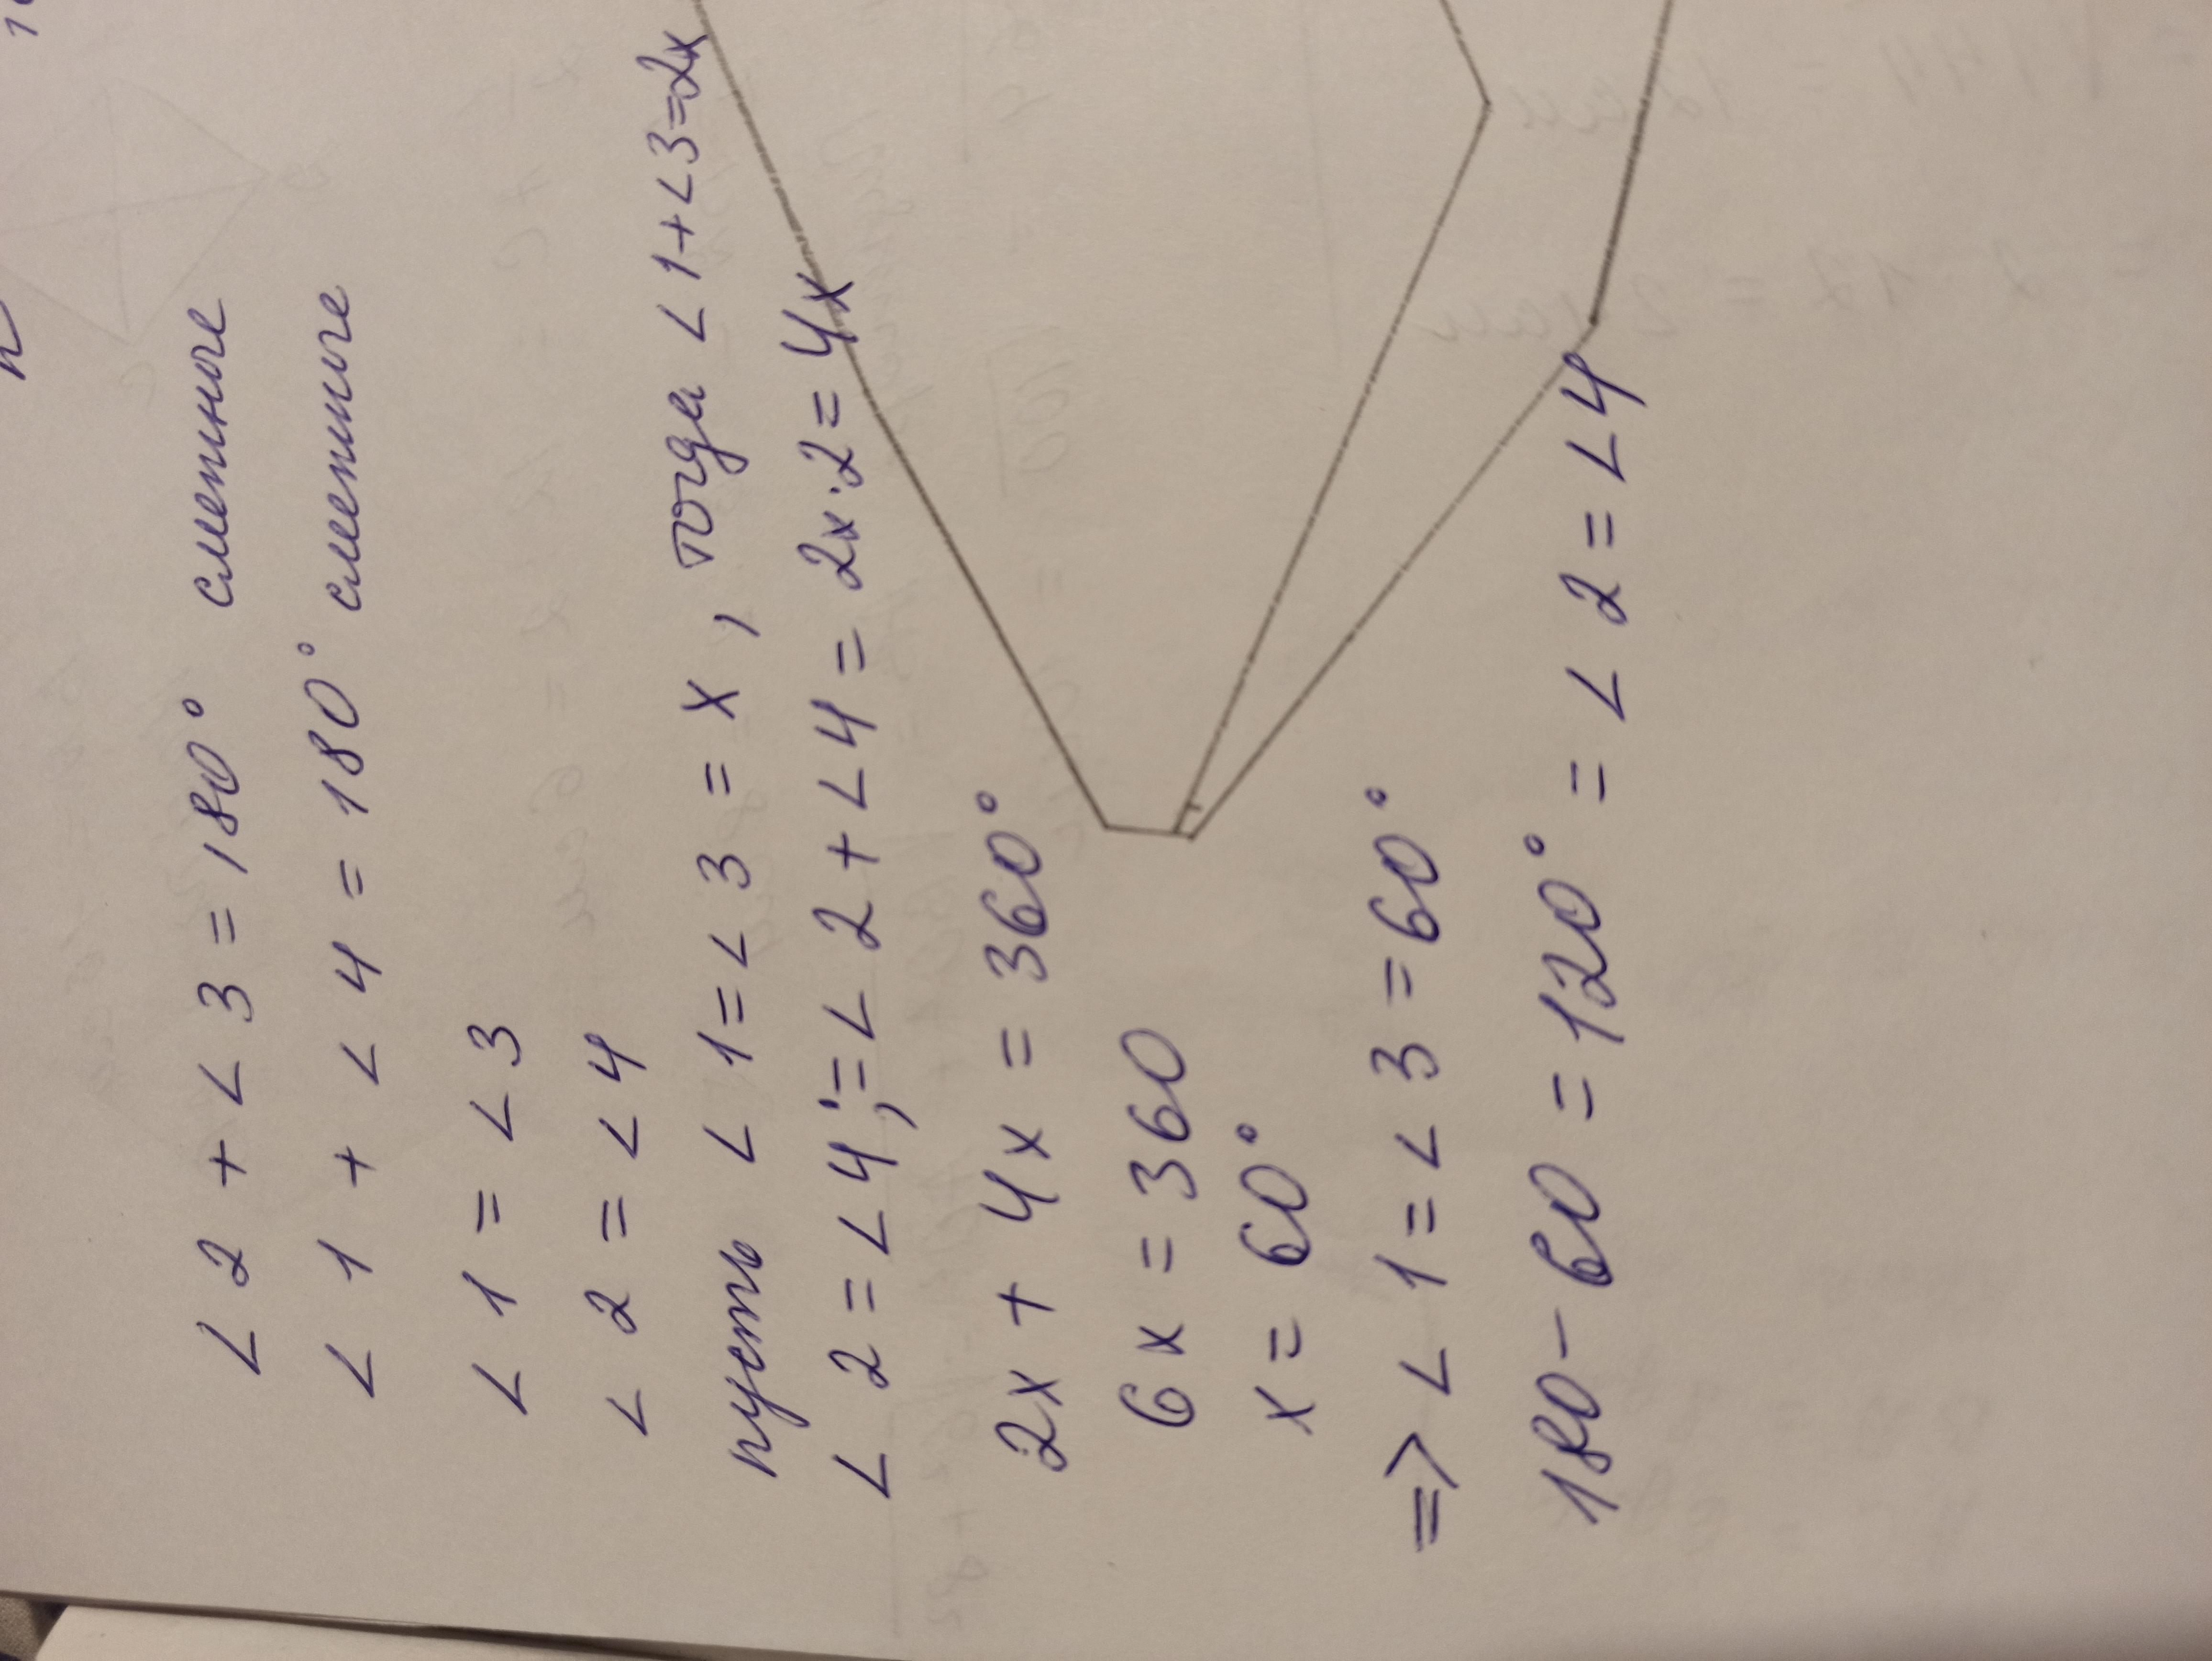 ∠ 2 + ∠ 3 = 180° смежные
∠ 1 + ∠ 4 = 180° смежные
∠ 1 = ∠ 3
∠ 2 = ∠ 4
пусть ∠ 1 = ∠ 3 = x, тогда ∠ 1 + ∠ 3 = 2x
∠ 2 = ∠ 4; = ∠ 2 + ∠ 4 = 2x · 2 = 4x
2x + 4x = 360°
6x = 360
x = 60°
=> ∠ 1 = ∠ 3 = 60°
180 - 60 = 120° = ∠ 2 = ∠ 4